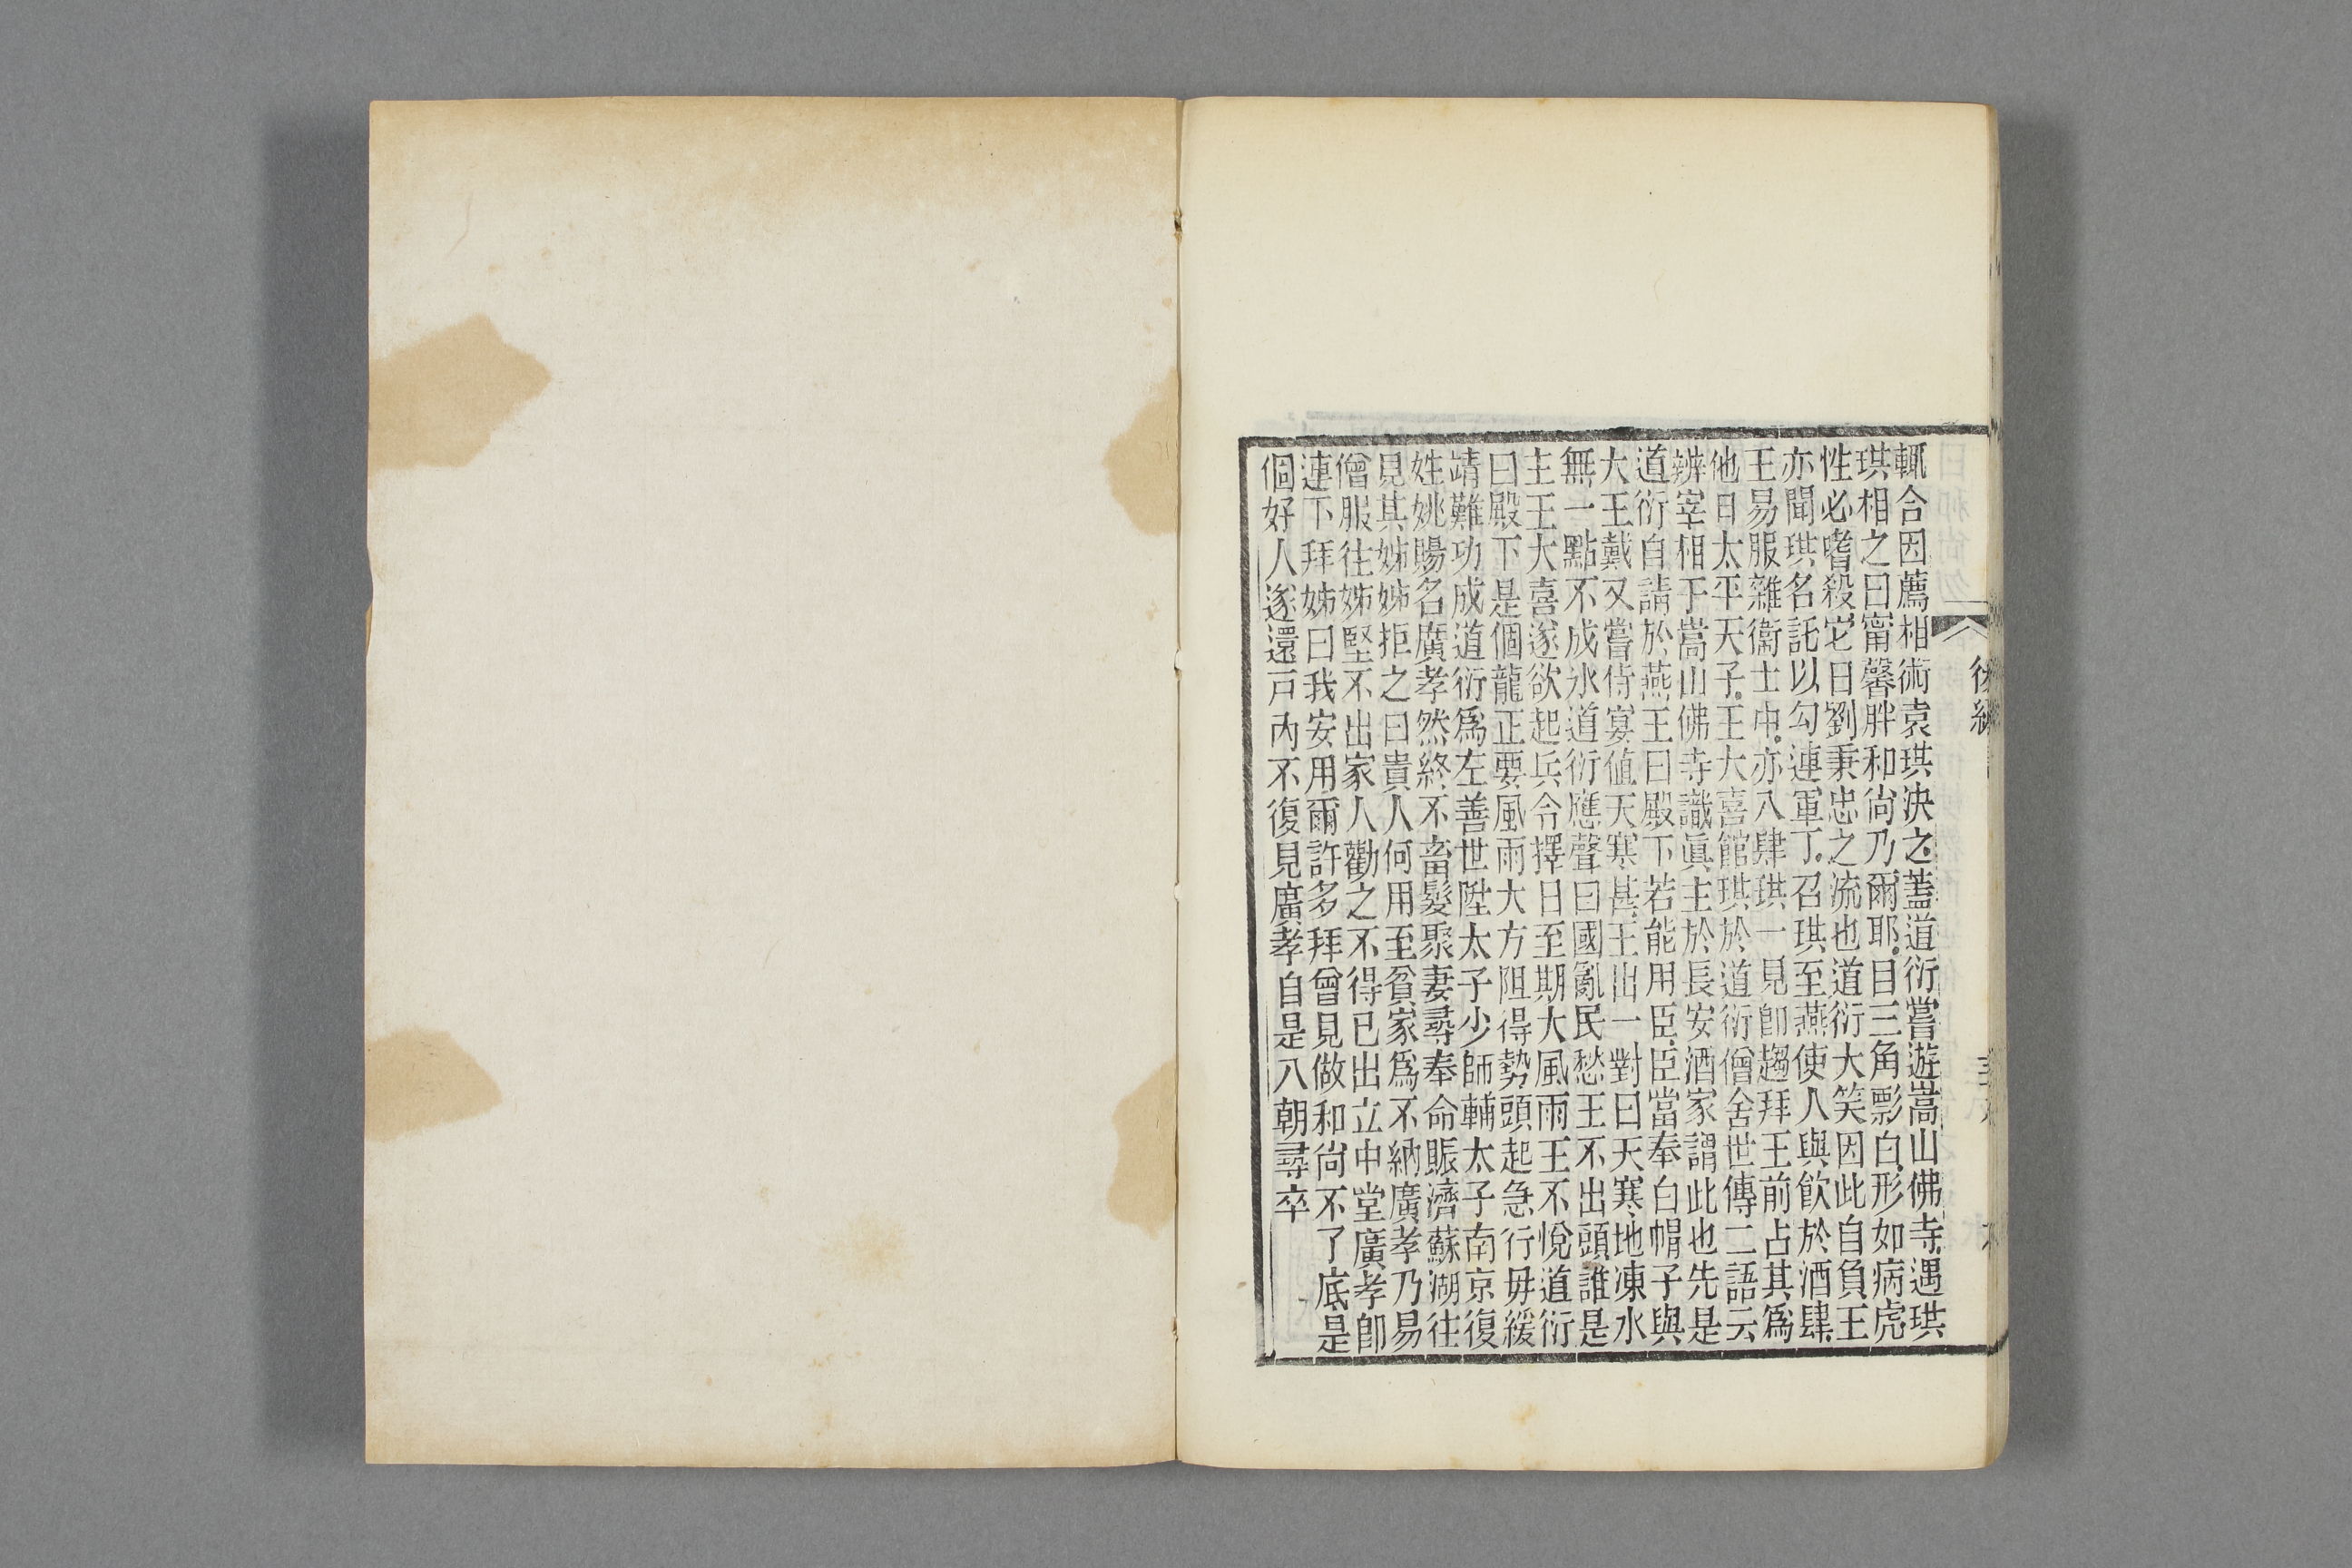 輒合因薦相術袁珙決之蓋道衍嘗遊嵩山佛寺遇珙
珙相之曰甯馨胖和尙乃爾耶目三角影白形如病虎
性必嗜殺它日劉秉忠之流也道衍大笑因此自負王
亦聞珙名託以勾連軍丁召珙至燕使人與飮於酒肆
王易服雜衞士中亦入肆珙一見卽趨拜王前占其爲
他日太平天子王大喜館珙於道衍僧舍世傳二語云
辨宰相于嵩山佛寺識眞主於長安酒家謂此也先是
道衍自請於燕王曰殿下若能用臣臣當奉白帽子與
大王戴又嘗侍宴値天寒甚王出一對曰天寒地凍水
無一點不成氷道衍應聲曰國亂民愁王不出頭誰是
主王大喜遂欲起兵令擇日至期大風雨王不悅道衍
曰殿下是個龍正要風雨大方阻得勢頭起急行毋緩
靖難功成道衍爲左善世陞太子少師輔太子南京復
姓姚賜名廣孝然終不畜髮聚妻尋奉命賑濟蘇湖往
見其姊姊拒之曰貴人何用至貧家爲不納廣孝乃易
僧服往姊堅不出家人勸之不得已出立中堂廣孝卽
連下拜姊曰我安用爾許多拜曾見做和尙不了底是
個好人遂還戸內不復見廣孝自是入朝尋卒